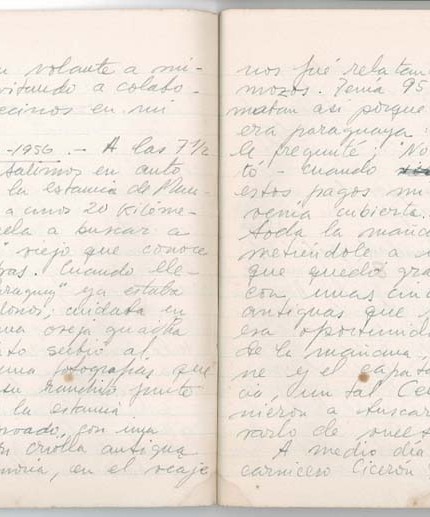 volante a mi-
vitando a colabo-
ecinos en mi
-1956. - A las 7 1/2
salimos en auto
la estancia de
a unos 20 kilóme-
ela a buscar a
" viejo que conoce
ras. Cuando lle-
araguay" ya estaba
cuidaba en
una oveja guacha
to subió al
una fotografias que
su rancho junto
la estancia
con una
criolla antigua
en el viaje
nos fué relatan
mozos. Tenía 95
matan así porque
era paraguaya.
le pregunté: "No
tó - cuando
estos pagos mi
venía cubierta.
toda la mañan
metiéndole a
que quedó gra
con unas cin
antiguas que
era oportunid
de la mañana,
ne y el capata
cia, un tal Ce
nieron a buscar
varlo de vuelt
A medio día
carnicero Cicerón